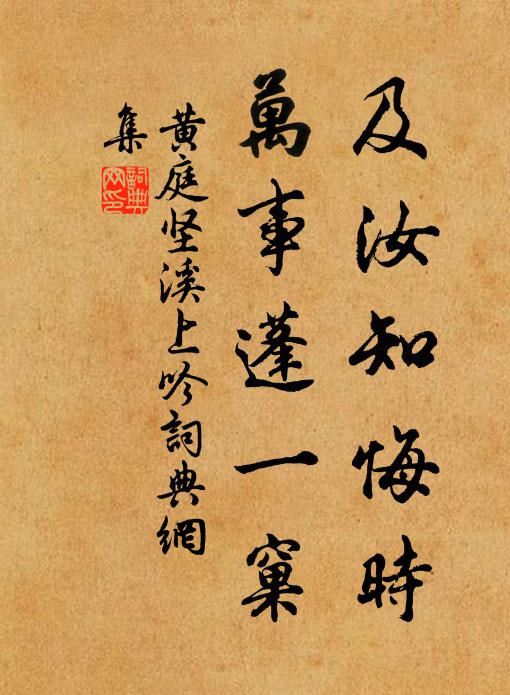 及汝知悔時
萬事蓬一窠
黄庭坚溪上吟詞典網
集
詞典
网印